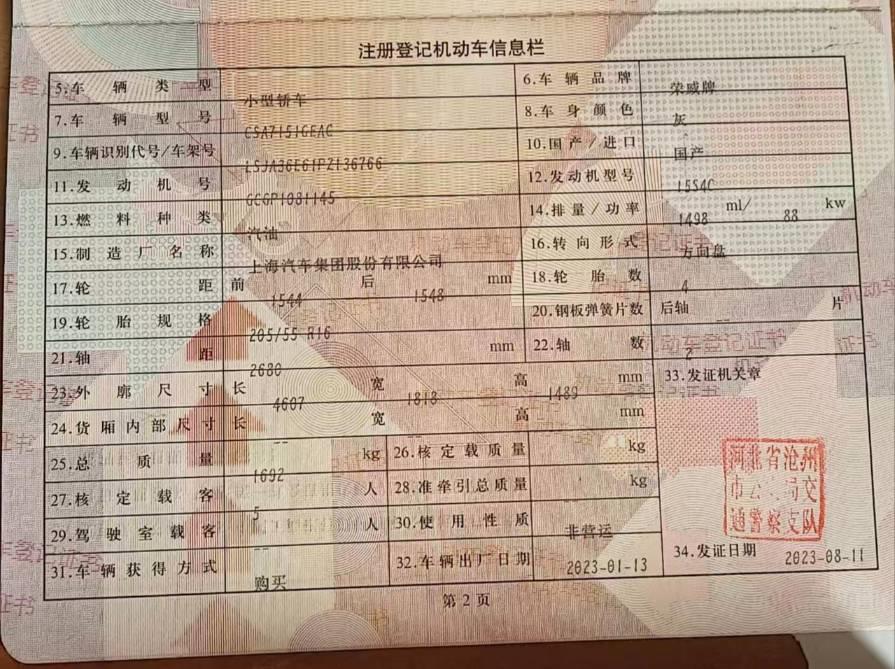 注册登记机动车信息栏
5.车辆类型 小型轿车 6.车辆品牌 荣威牌
7.车辆型号 CSA7151GEAC 8.车身颜色 灰
9.车辆识别代号/车架号 LSJA36E61PZ136766 10.国产/进口 国产
11.发动机号 GCGP1081145 12.发动机型号 15S4C
13.燃料种类 汽油 14.排量/功率 1498 ml/ 88 kw
15.制造厂名称 上海汽车集团股份有限公司 16.转向形式 方向盘
17.轮距 前 1544 后 1548 mm 18.轮胎数 4
19.轮胎规格 205/55 R16 20.钢板弹簧片数 后轴 片
21.轴距 2680 mm 22.轴数 2
23.外廓尺寸 长 4607 宽 1818 高 1489 mm 33.发证机关章
24.货厢内部尺寸 长 -- 宽 -- 高 -- mm
25.总质量 1692 kg 26.核定载质量 -- kg
27.核定载客 5 人 28.准牵引总质量 -- kg
29.驾驶室载客 -- 人 30.使用性质 非营运
31.车辆获得方式 购买 32.车辆出厂日期 2023-01-13 34.发证日期 2023-08-11
河北省沧州
市公安局交
通警察支队
第2页